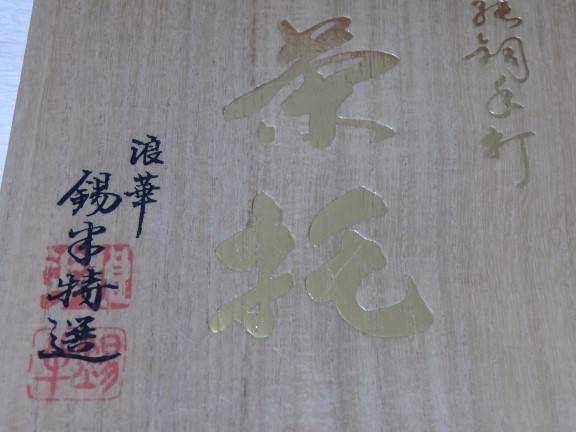 純銅手打
茶托
浪華
錫半特選